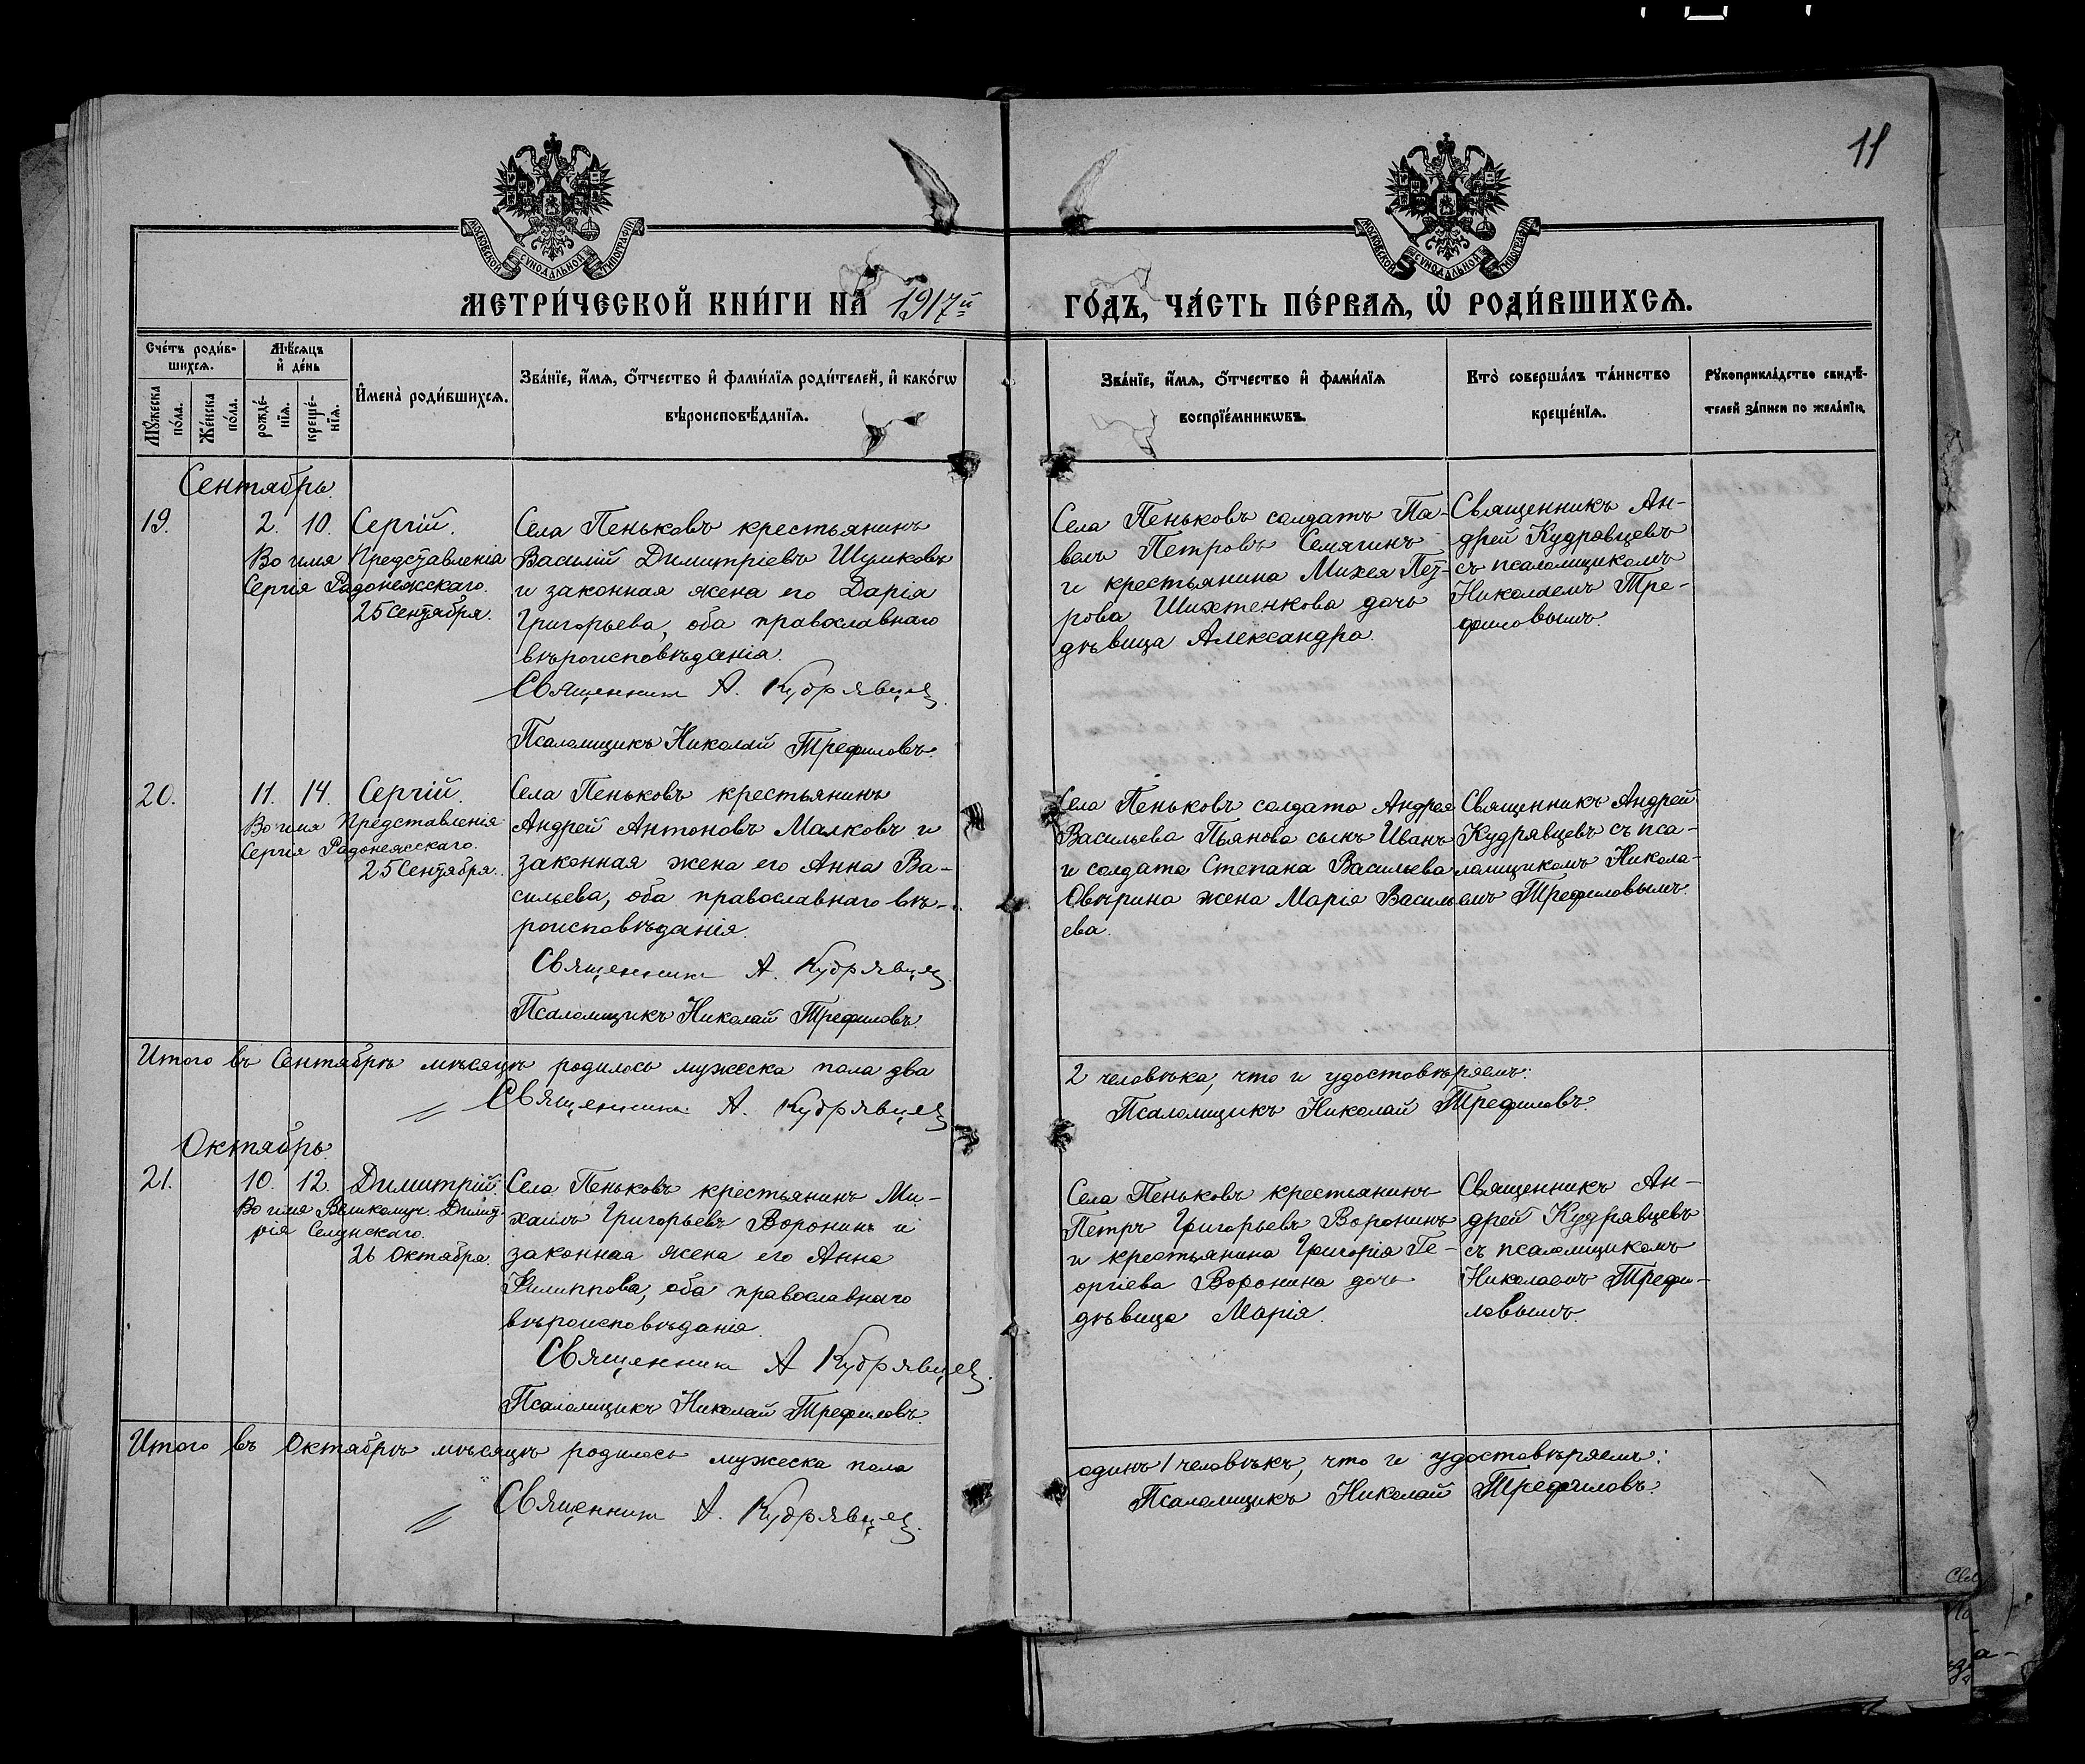 11
МОСКОВСКОЙ СѴНОДАЛЬНОЙ ТИПОГРАФІИ
МОСКОВСКОЙ СѴНОДАЛЬНОЙ ТИПОГРАФІИ
МЕТРИ́ЧЕСКОЙ КНИ́ГИ НА 1917й
ГО́ДЪ, ЧА́СТЬ ПЕ́РВАѦ, Ѡ҆ РОДИ́ВШИХСѦ.
Сче́тъ роди́в-
шихсѧ.
Мѣ́сѧцъ
и҆ де́нь
Мꙋ́жеска
по́ла.
Же́нска
по́ла.
рожде́-
нїѧ.
креще́-
нїѧ.
И҆мена̀ роди́вшихсѧ.
Зва́нїе, и҆́мѧ, о҆́тчество и҆ фами́лїѧ роди́телей, и҆ како́гѡ
вѣроисповѣ́данїѧ.
Зва́нїе, и҆́мѧ, о҆́тчество и҆ фами́лїѧ
воспрїе́мникѡвъ.
Кто̀ соверша́лъ та́инство
креще́нїѧ.
Рꙋкоприкла́дство свидѣ́-
телей за́писи по жела́нїю.
Сентябрь.
19.
2. 10.
Сергій.
Во имя Представленія
Сергія Радонежскаго.
25 Сентября.
Села Пеньковъ крестьянинъ
Василій Димитріевъ Шумковъ
и законная жена его Дарія
Григорьева, оба православнаго
вѣроисповѣданія.
Священникъ А. Кудрявцевъ.
Псаломщикъ Николай Трефиловъ.
Села Пеньковъ солдатъ Па-
велъ Петровъ Семягинъ
и крестьянина Михея Пет-
рова Шихтенкова дочь
дѣвица Александра.
Священникъ Ан-
дрей Кудрявцевъ
съ псаломщикомъ
Николаемъ Тре-
филовымъ.
20.
11. 14.
Сергій.
Во имя Представленія
Сергія Радонежскаго.
25 Сентября.
Села Пеньковъ крестьянинъ
Андрей Антоновъ Малковъ и
законная жена его Анна Ва-
сильева, оба православнаго вѣ-
роисповѣданія.
Священникъ А. Кудрявцевъ
Псаломщикъ Николай Трефиловъ.
Села Пеньковъ солдата Андрея
Васильева Пьянова сынъ Иванъ
и солдата Степана Васильева
Овѣрина жена Марія Василь
ева.
Священникъ Андрей
Кудрявцевъ съ пса-
ломщикомъ Никола-
емъ Трефиловымъ.
Итого въ Сентябрѣ мѣсяцѣ родилось мужеска пола два
2 человѣка, что и удостовѣряемъ:
Священникъ А. Кудрявцевъ
Псаломщикъ Николай Трефиловъ.
Октябрь.
21.
10. 12.
Димитрій.
Во имя Великомуч. Димит
рія Селунскаго.
26 Октября.
Села Пеньковъ крестьянинъ Ми-
хаилъ Григорьевъ Воронинъ и
законная жена его Анна
Филиппова, оба православнаго
вѣроисповѣданія.
Священникъ А Кудрявцевъ.
Псаломщикъ Николай Трефиловъ.
Села Пеньковъ крестьянинъ
Петръ Григорьевъ Воронинъ
и крестьянина Григорія Ге-
оргіева Воронина дочь
дѣвица Марія.
Священникъ Ан-
дрей Кудрявцевъ
съ псаломщикомъ
Николаемъ Трефи-
ловымъ.
Итого въ Октябрѣ мѣсяцѣ родилось мужеска пола
одинъ 1 человѣкъ, что и удостовѣряемъ:
Священникъ А. Кудрявцевъ.
Псаломщикъ Николай Трефиловъ.